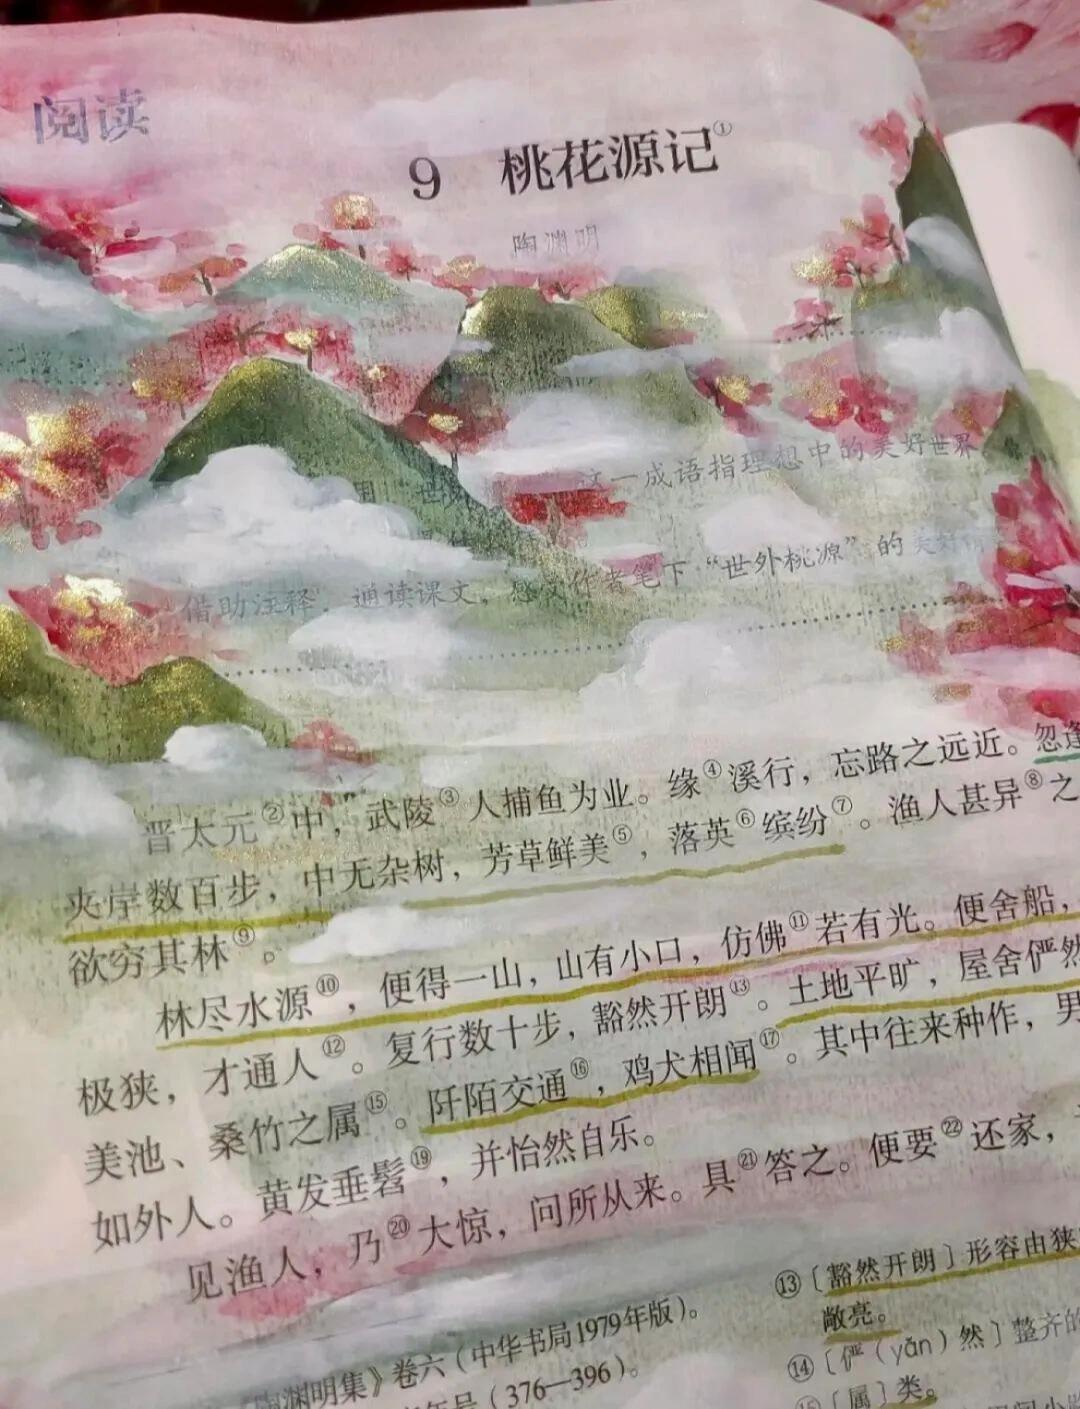 阅读
9 桃花源记①
陶渊明
这一成语指理想中的美好世界
借助注释，通读课文，感受作者笔下“世外桃源”的美好
晋太元②中，武陵③人捕鱼为业。缘④溪行，忘路之远近。忽逢
夹岸数百步，中无杂树，芳草鲜美⑤，落英⑥缤纷⑦。渔人甚异⑧之
欲穷其林⑨。
林尽水源⑩，便得一山，山有小口，仿佛⑪若有光。便舍船，
极狭，才通人⑫。复行数十步，豁然开朗⑬。土地平旷，屋舍俨然
美池、桑竹之属⑮。阡陌交通⑯，鸡犬相闻⑰。其中往来种作，男
如外人。黄发垂髫⑲，并怡然自乐。
见渔人，乃⑳大惊，问所从来。具㉑答之。便要㉒还家，
陶渊明集》卷六（中华书局1979年版）。
年号（376—396）。
⑬〔豁然开朗〕形容由狭
敞亮。
⑭〔俨（yǎn）然〕整齐的
⑮〔属〕类。